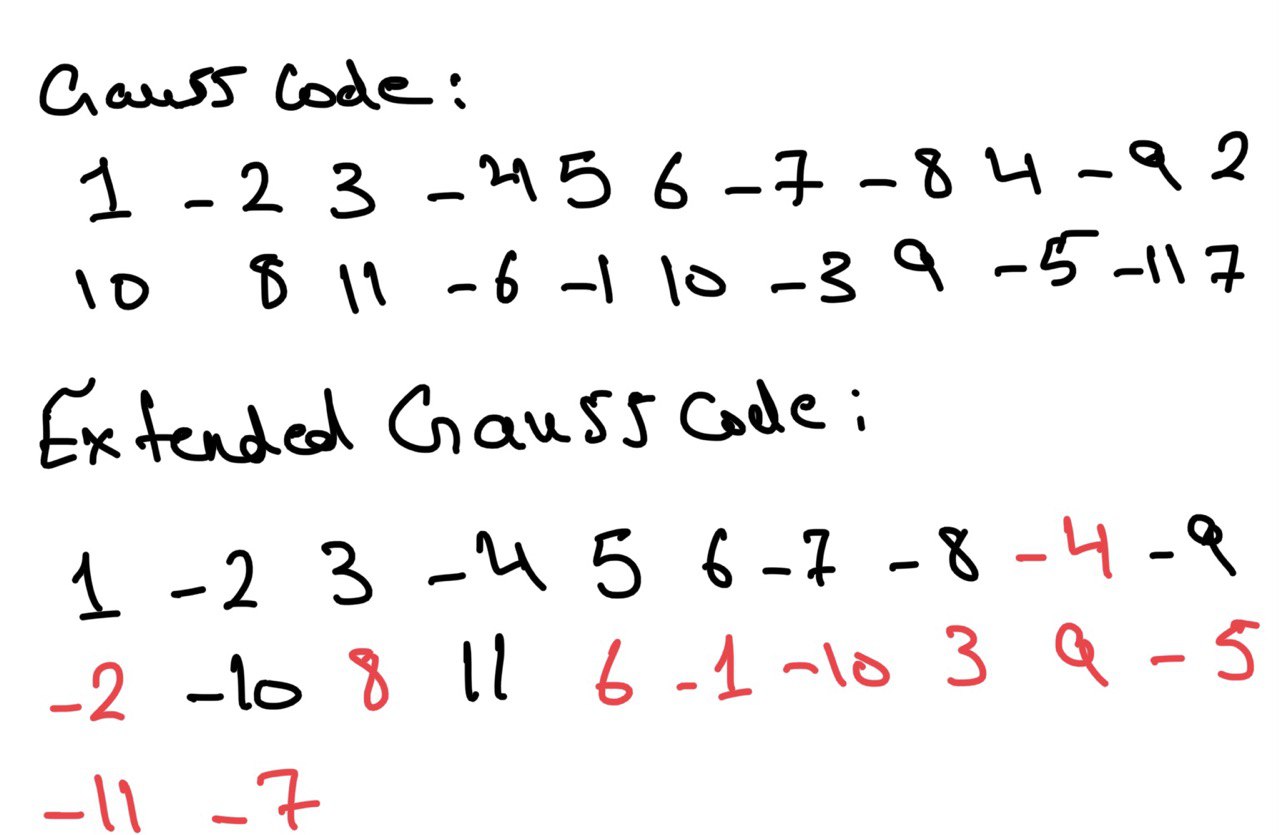 Gauss Code:
1 -2 3 -4 5 6 -7 -8 4 -9 2
10 8 11 -6 -1 10 -3 9 -5 -11 7
Extended Gauss Code:
1 -2 3 -4 5 6 -7 -8 -4 -9
-2 -10 8 11 6 -1 -10 3 9 -5
-11 -7